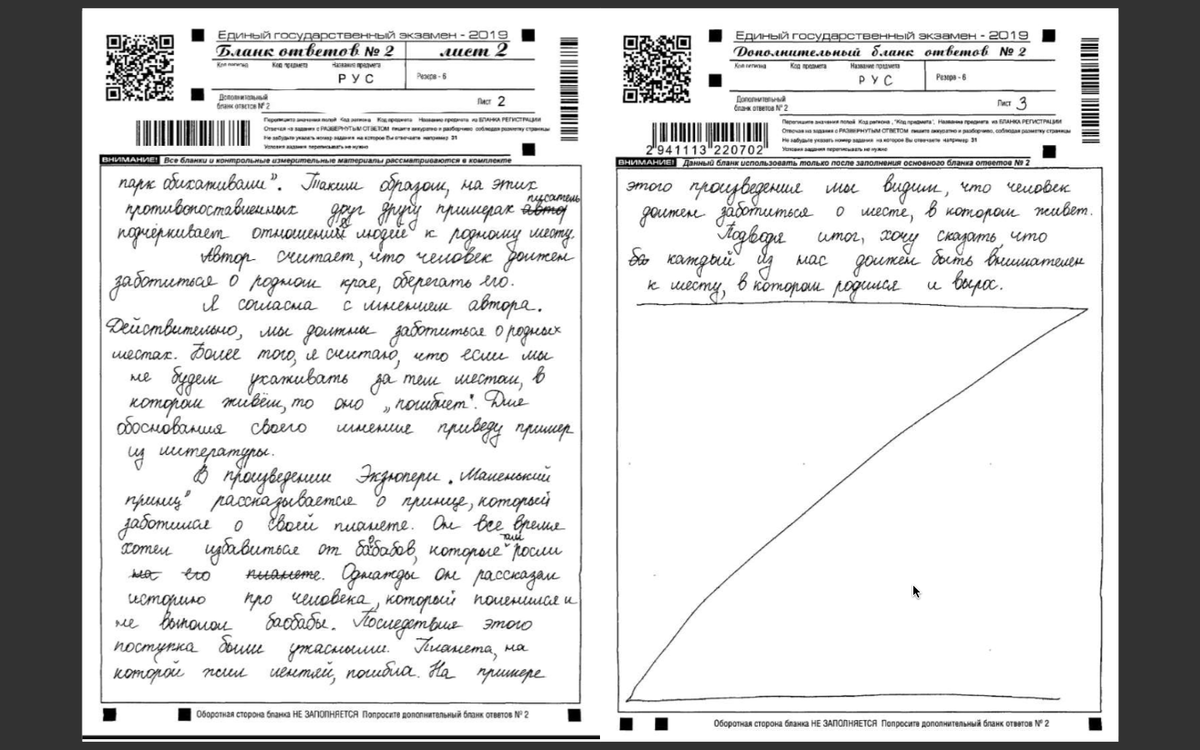 Единый государственный экзамен - 2019
Бланк ответов № 2 лист 2
Код региона Код предмета Название предмета
РУС
Резерв - 6
Дополнительный
бланк ответов № 2
Лист 2
Перепишите значения полей Код региона Код предмета Название предмета из БЛАНКА РЕГИСТРАЦИИ
Отвечая на задания с РАЗВЕРНУТЫМ ОТВЕТОМ пишите аккуратно и разборчиво соблюдая разметку страницы
Не забудьте указать номер задания на которое Вы отвечаете например 31
Условия задания переписывать не нужно
ВНИМАНИЕ! Все бланки и контрольные измерительные материалы рассматриваются в комплекте
парк обихаживали". Таким образом, на этих
противопоставленных друг другу примерах автор писатель
подчёркивает отношений людей к родному месту
Автор считает, что человек должен
заботиться о родном крае, оберегать его.
Я согласна с мнением автора.
Действительно, мы должны заботиться о родных
местах. Более того, я считаю, что если мы
не будем ухаживать за тем местом, в
котором живём, то оно „погибнет". Для
обоснования своего мнения приведу пример
из литературы.
В произведении Экзюпери „Маленький
принц" рассказывается о принце, который
заботился о своей планете. Он все время
хотел избавиться от баобабов, которые там росли
на его планете. Однажды он рассказал
историю про человека, который поленился и
не выполол баобабы. Последствия этого
поступка были ужасными. Планета, на
которой жил лентяй, погибла. На примере
Оборотная сторона бланка НЕ ЗАПОЛНЯЕТСЯ Попросите дополнительный бланк ответов № 2
Единый государственный экзамен - 2019
Дополнительный бланк ответов № 2
Код региона Код предмета Название предмета
РУС
Резерв - 6
Дополнительный
бланк ответов № 2
Лист 3
2941113 220702
Перепишите значения полей "Код региона", "Код предмета", "Название предмета" из БЛАНКА РЕГИСТРАЦИИ
Отвечая на задания с РАЗВЕРНУТЫМ ОТВЕТОМ пишите аккуратно и разборчиво, соблюдая разметку страницы
Не забудьте указать номер задания на которое Вы отвечаете например 31
Условия задания переписывать не нужно
ВНИМАНИЕ! Данный бланк использовать только после заполнения основного бланка ответов № 2
этого произведения мы видим, что человек
должен заботиться о месте, в котором живет.
Подводя итог, хочу сказать что
ба каждый из нас должен быть внимателен
к месту, в котором родился и вырос.
Оборотная сторона бланка НЕ ЗАПОЛНЯЕТСЯ Попросите дополнительный бланк ответов № 2